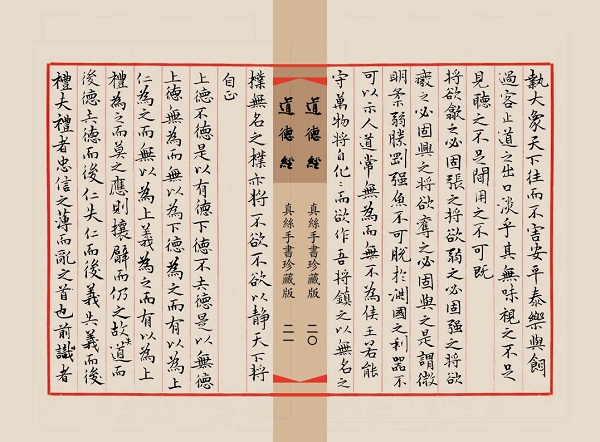 執大象天下往而不害安平泰樂與餌
過客止道之出口淡乎其無味視之不足
見聽之不足聞用之不可既
將欲歙之必固張之將欲弱之必固强之將欲
廢之必固興之將欲奪之必固與之是謂微
明柔弱勝剛强魚不可脫於淵國之利器不
可以示人道常無為而無不為侯王若能
守萬物將自化〻而欲作吾將鎮之以無名之
道德經 真絲手書珍藏版 二〇
道德經 真絲手書珍藏版 二一
樸無名之樸亦將不欲不欲以靜天下將
自正
上德不德是以有德下德不失德是以無德
上德無為而無以為下德為之而有以為上
仁為之而無以為上義為之而有以為上
禮為之而莫之應則攘臂而仍之故失道而
後德失德而後仁失仁而後義失義而後
禮夫禮者忠信之薄而亂之首也前識者